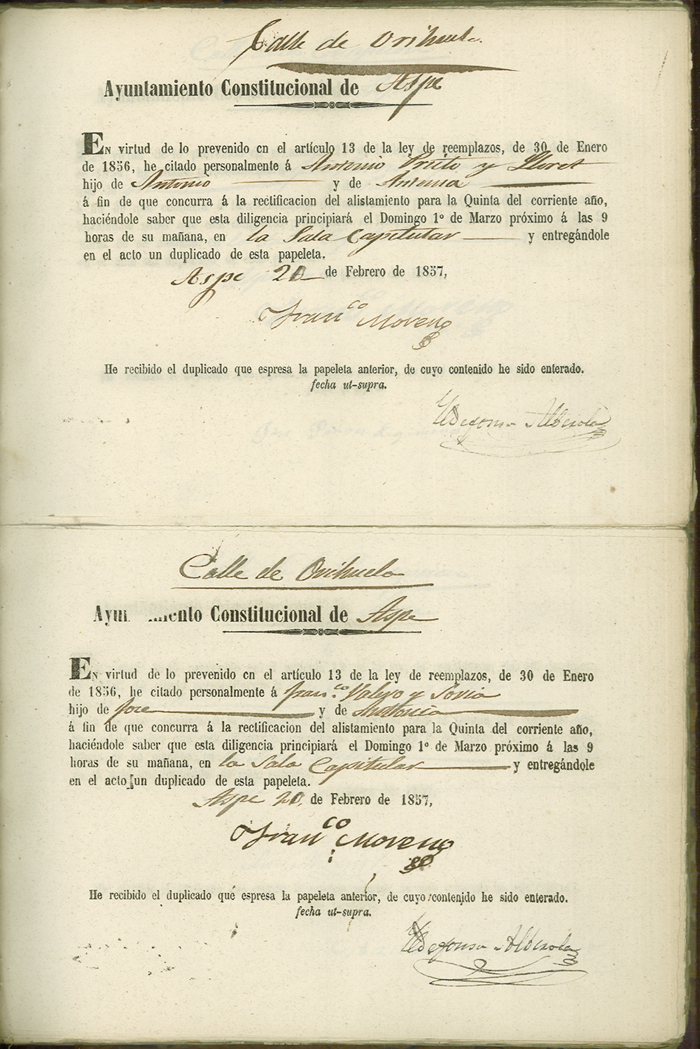 Calle de Orihuela.
Ayuntamiento Constitucional de Aspe
En virtud de lo prevenido en el artículo 13 de la ley de reemplazos, de 30 de Enero
de 1856, he citado personalmente á Antonio Prieto y Lloret
hijo de Antonio y de Antonia
á fin de que concurra á la rectificacion del alistamiento para la Quinta del corriente año,
haciéndole saber que esta diligencia principiará el Domingo 1º de Marzo próximo á las 9
horas de su mañana, en la Sala Capitular y entregándole
en el acto un duplicado de esta papeleta.
Aspe 20 de Febrero de 1857,
Franco Moreno
He recibido el duplicado que espresa la papeleta anterior, de cuyo contenido he sido enterado.
fecha ut-supra.
Yldefonso Alberola
Calle de Orihuela
Ayun miento Constitucional de Aspe
En virtud de lo prevenido en el artículo 13 de la ley de reemplazos, de 30 de Enero
de 1856, he citado personalmente á Franco Valero y Soria
hijo de Jose y de Antonia
á fin de que concurra á la rectificacion del alistamiento para la Quinta del corriente año,
haciéndole saber que esta diligencia principiará el Domingo 1º de Marzo próximo á las 9
horas de su mañana, en la Sala Capitular y entregándole
en el acto un duplicado de esta papeleta.
Aspe 20 de Febrero de 1857,
Franco Moreno
He recibido el duplicado que espresa la papeleta anterior, de cuyo contenido he sido enterado.
fecha ut-supra.
Yldefonso Alberola